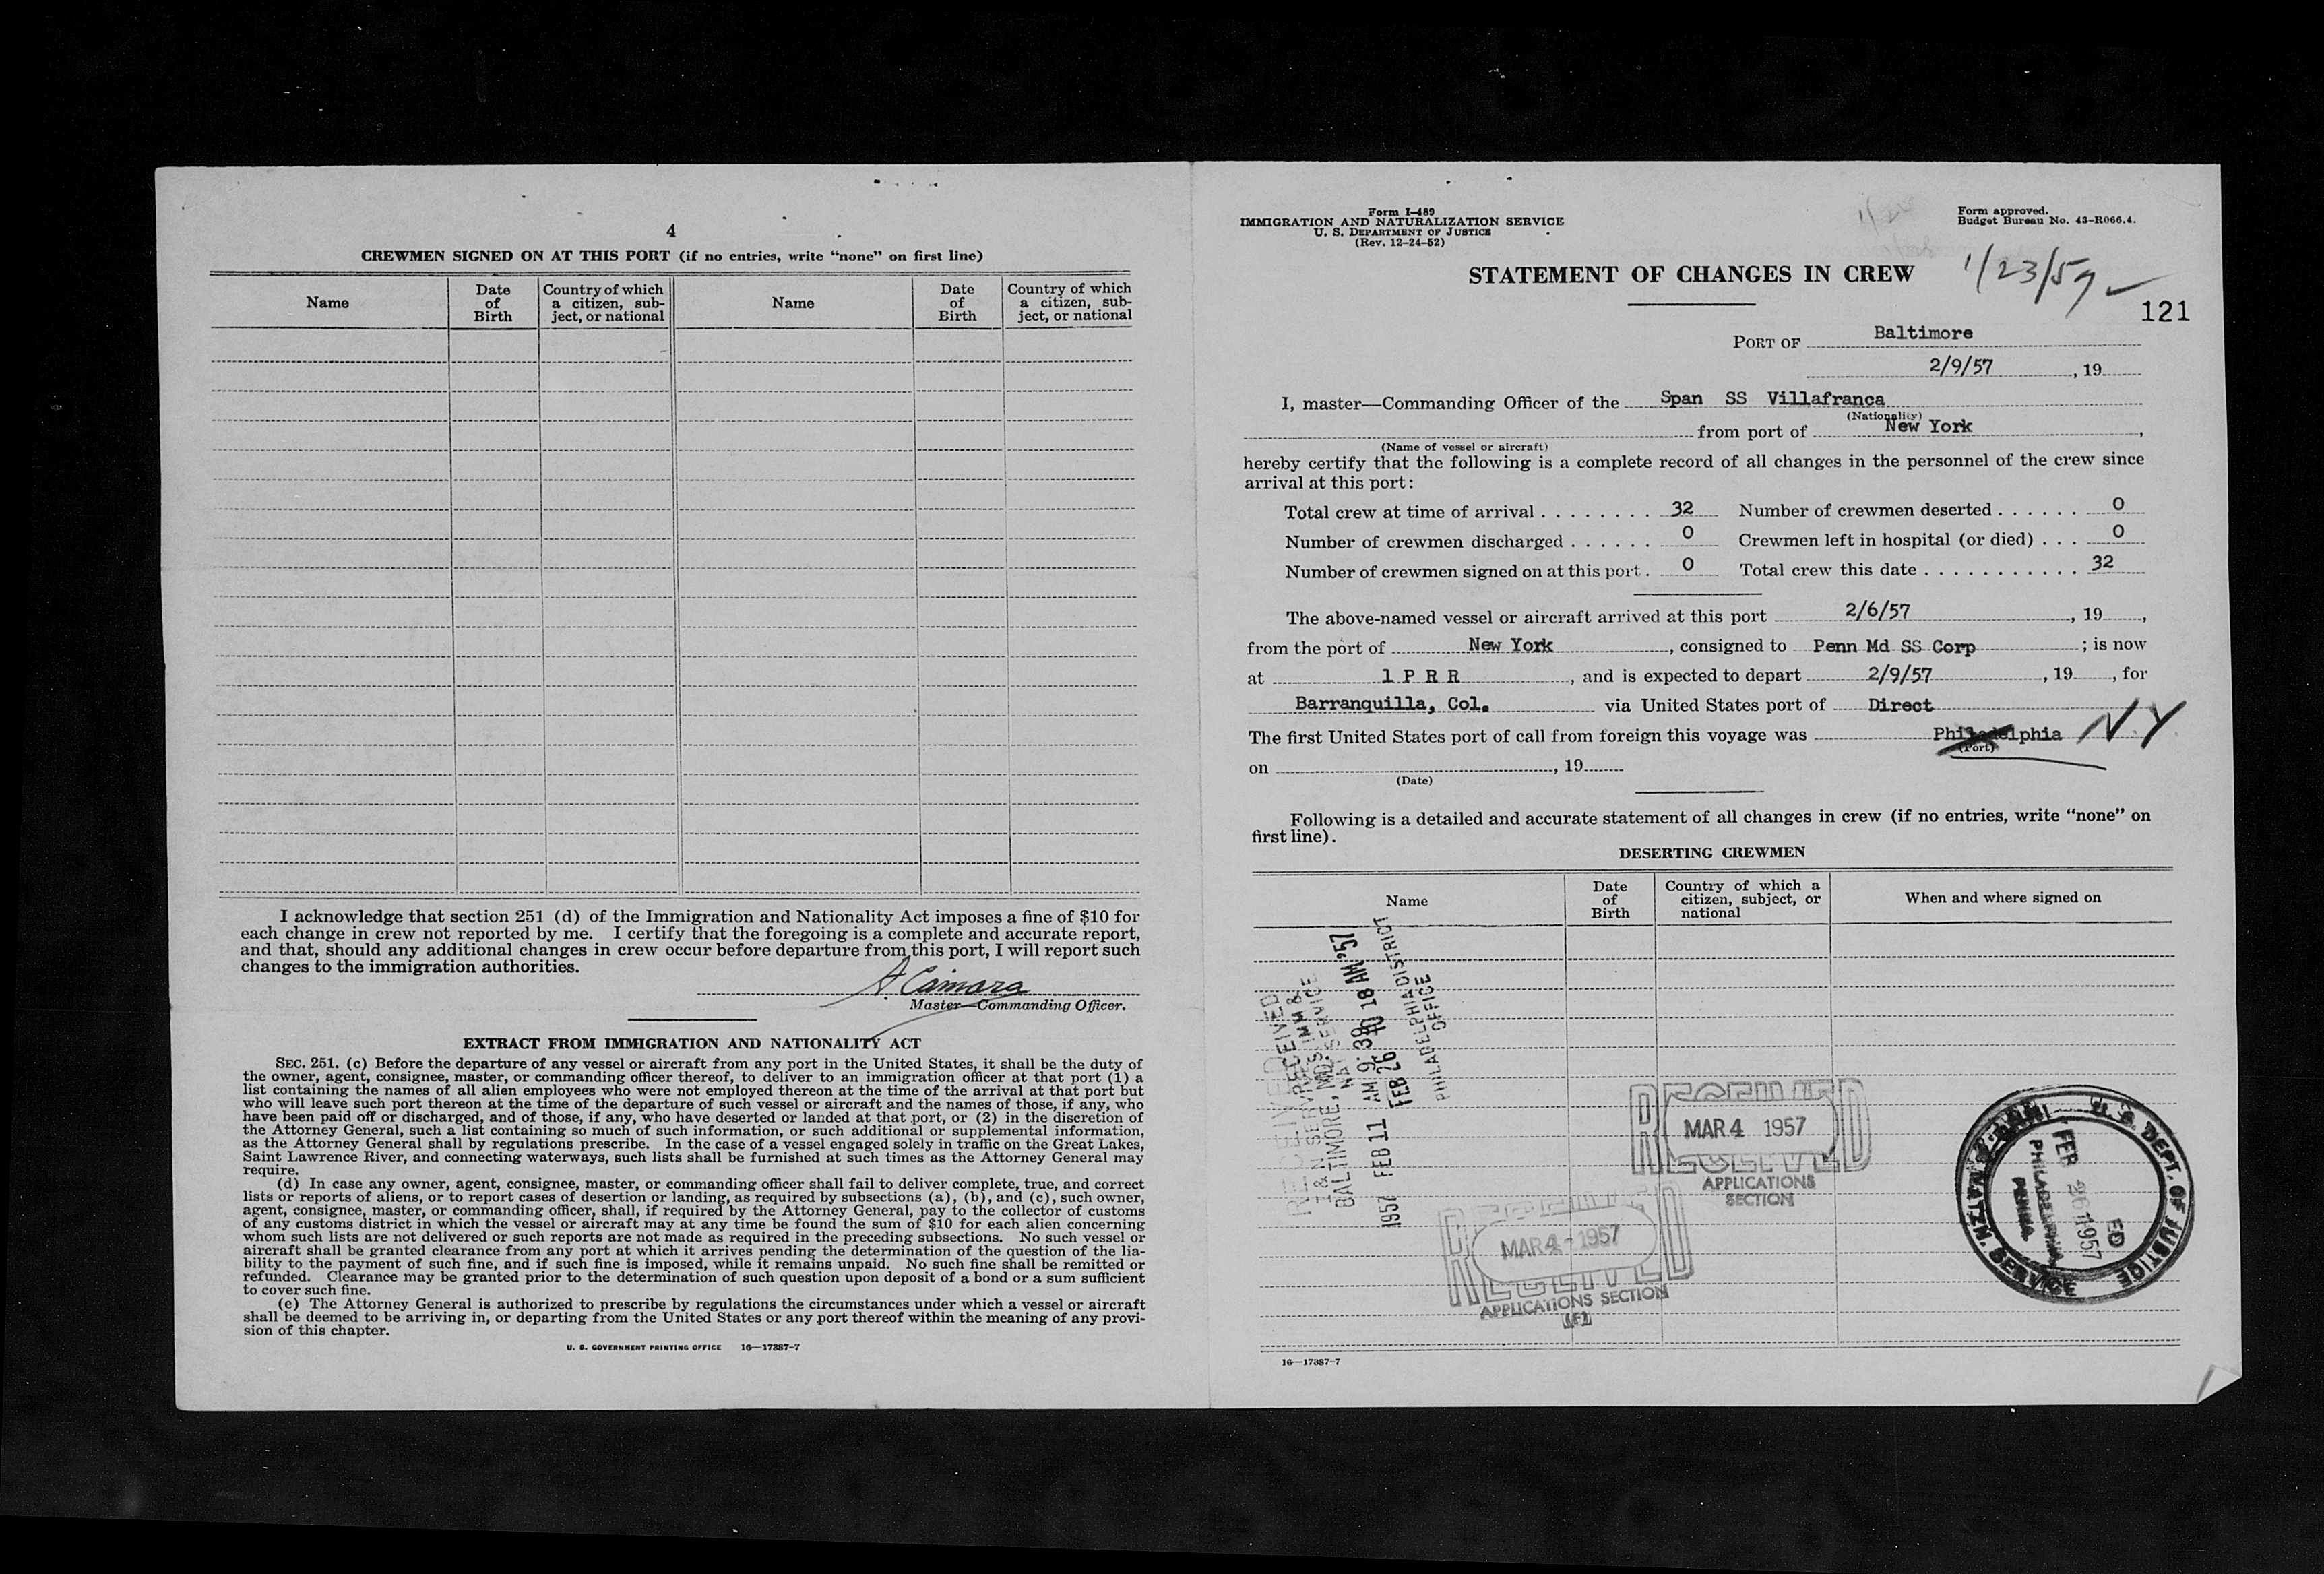 4
CREWMEN SIGNED ON AT THIS PORT (if no entries, write “none” on first line)
Name
Date of Birth
Country of which a citizen, sub-ject, or national
Name
Date of Birth
Country of which a citizen, sub-ject, or national
I acknowledge that section 251 (d) of the Immigration and Nationality Act imposes a fine of $10 for
each change in crew not reported by me. I certify that the foregoing is a complete and accurate report,
and that, should any additional changes in crew occur before departure from this port, I will report such
changes to the immigration authorities.
A. Camara
Master—Commanding Officer.
EXTRACT FROM IMMIGRATION AND NATIONALITY ACT
SEC. 251. (c) Before the departure of any vessel or aircraft from any port in the United States, it shall be the duty of
the owner, agent, consignee, master, or commanding officer thereof, to deliver to an immigration officer at that port (1) a
list containing the names of all alien employees who were not employed thereon at the time of the arrival at that port but
who will leave such port thereon at the time of the departure of such vessel or aircraft and the names of those, if any, who
have been paid off or discharged, and of those, if any, who have deserted or landed at that port, or (2) in the discretion of
the Attorney General, such a list containing so much of such information, or such additional or supplemental information,
as the Attorney General shall by regulations prescribe. In the case of a vessel engaged solely in traffic on the Great Lakes,
Saint Lawrence River, and connecting waterways, such lists shall be furnished at such times as the Attorney General may
require.
(d) In case any owner, agent, consignee, master, or commanding officer shall fail to deliver complete, true, and correct
lists or reports of aliens, or to report cases of desertion or landing, as required by subsections (a), (b), and (c), such owner,
agent, consignee, master, or commanding officer, shall, if required by the Attorney General, pay to the collector of customs
of any customs district in which the vessel or aircraft may at any time be found the sum of $10 for each alien concerning
whom such lists are not delivered or such reports are not made as required in the preceding subsections. No such vessel or
aircraft shall be granted clearance from any port at which it arrives pending the determination of the question of the lia-
bility to the payment of such fine, and if such fine is imposed, while it remains unpaid. No such fine shall be remitted or
refunded. Clearance may be granted prior to the determination of such question upon deposit of a bond or a sum sufficient
to cover such fine.
(e) The Attorney General is authorized to prescribe by regulations the circumstances under which a vessel or aircraft
shall be deemed to be arriving in, or departing from the United States or any port thereof within the meaning of any provi-
sion of this chapter.
U. S. GOVERNMENT PRINTING OFFICE 16—17387-7
Form I-489
IMMIGRATION AND NATURALIZATION SERVICE
U. S. DEPARTMENT OF JUSTICE
(Rev. 12-24-52)
Form approved.
Budget Bureau No. 43-R066.4.
STATEMENT OF CHANGES IN CREW
1/23/57
121
PORT OF Baltimore
2/9/57, 19
I, master—Commanding Officer of the Span SS Villafranca
(Nationality)
from port of New York,
(Name of vessel or aircraft)
hereby certify that the following is a complete record of all changes in the personnel of the crew since
arrival at this port:
Total crew at time of arrival . . . . . . . . 32 Number of crewmen deserted . . . . . . 0
Number of crewmen discharged . . . . . . 0 Crewmen left in hospital (or died) . . . 0
Number of crewmen signed on at this port . 0 Total crew this date . . . . . . . . . . . 32
The above-named vessel or aircraft arrived at this port 2/6/57, 19,
from the port of New York, consigned to Penn Md SS Corp; is now
at 1 P R R, and is expected to depart 2/9/57, 19, for
Barranquilla, Col. via United States port of Direct
The first United States port of call from foreign this voyage was Philadelphia N.Y
(Port)
on , 19
(Date)
Following is a detailed and accurate statement of all changes in crew (if no entries, write “none” on
first line).
DESERTING CREWMEN
Name
Date of Birth
Country of which a citizen, subject, or national
When and where signed on
RECEIVED
BALTIMORE, MD.
1957 FEB 11 AM 9:38
FEB 26 10 18 AM '57
PHILADELPHIA DISTRICT
OFFICE
RECEIVED
MAR 4 1957
APPLICATIONS
SECTION
RECEIVED
MAR 4 - 1957
APPLICATIONS SECTION
U. S. DEPT. OF JUSTICE
FEB 26 1957
PHILADELPHIA
PENNA.
16—17387-7